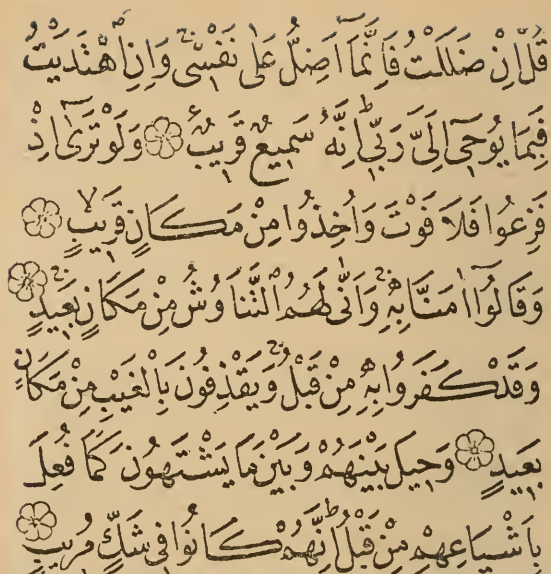 قُلْ اِنْ ضَلَلْتُ فَاِنَّمَٓا اَضِلُّ عَلٰى نَفْسٖى وَاِنِ اهْتَدَيْتُ
فَبِمَا يُوحٖٓى اِلَىَّ رَبّٖى اِنَّهُ سَمٖيعٌ قَرٖيبٌ وَلَوْ تَرٰٓى اِذْ
فَزِعُوا فَلَا فَوْتَ وَاُخِذُوا مِنْ مَكَانٍ قَرٖيبٍ
وَقَالُٓوا اٰمَنَّا بِهٖ وَاَنّٰى لَهُمُ التَّنَاوُشُ مِنْ مَكَانٍ بَعٖيدٍ
وَقَدْ كَفَرُوا بِهٖ مِنْ قَبْلُ وَيَقْذِفُونَ بِالْغَيْبِ مِنْ مَكَانٍ
بَعٖيدٍ وَحٖيلَ بَيْنَهُمْ وَبَيْنَ مَا يَشْتَهُونَ كَمَا فُعِلَ
بِاَشْيَاعِهِمْ مِنْ قَبْلُ اِنَّهُمْ كَانُوا فٖى شَكٍّ مُرٖيبٍ